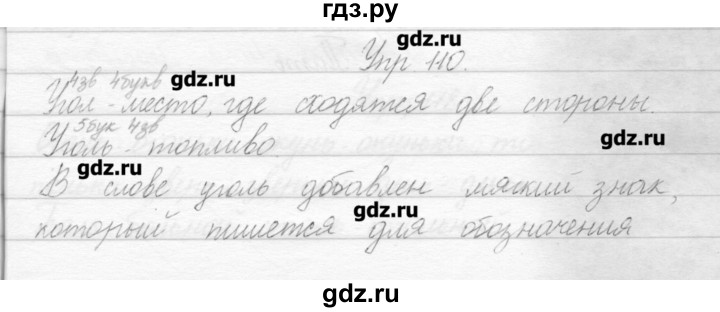 гдз.ру
gdz.ru
Упр 110.
4зв 4букв
gdz.ru
Угол - место, где сходятся две стороны.
5бук 4зв
gdz.ru
Уголь - топливо.
gdz.ru
В слове уголь добавлен мягкий знак,
gdz.ru
который пишется для обозначения
gdz.ru